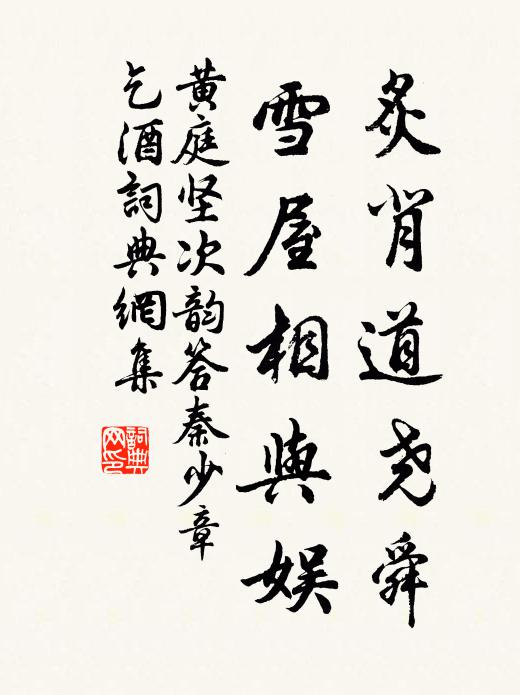 炙背道尧舜
雪屋相與娱
黄庭坚次韵答秦少章
乞酒詞典網集
詞典網印